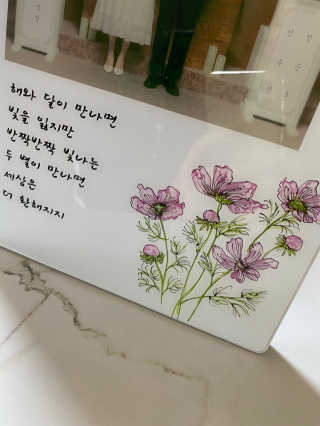 해와 달이 만나면
빛을 잃지만
반짝반짝 빛나는
두 별이 만나면
세상은
더 환해지지